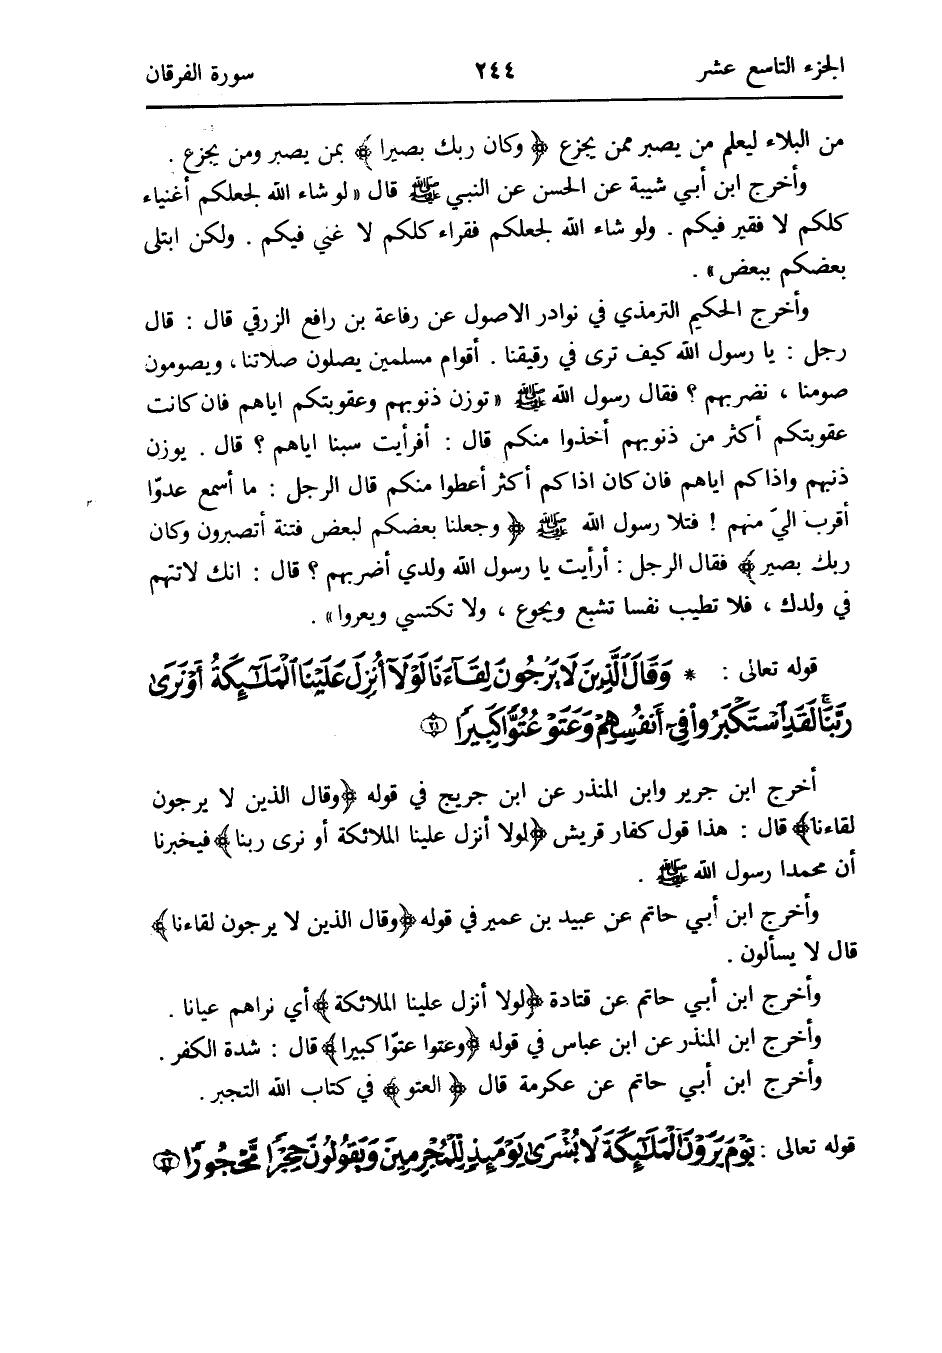 الجزء التاسع عشر ٢٤٤ سورة الفرقان
من البلاء ليعلم من يصبر ممن يجزع ﴿ وكان ربك بصيرا ﴾ بمن يصبر ومن يجزع .
وأخرج ابن أبي شيبة عن الحسن عن النبي ﷺ قال «لو شاء الله لجعلكم أغنياء
كلكم لا فقير فيكم . ولو شاء الله لجعلكم فقراء كلكم لا غني فيكم . ولكن ابتلى
بعضكم ببعض» .
وأخرج الحكيم الترمذي في نوادر الاصول عن رفاعة بن رافع الزرقي قال : قال
رجل : يا رسول الله كيف ترى في رقيقنا . أقوام مسلمين يصلون صلاتنا ، ويصومون
صومنا ، نضربهم ؟ فقال رسول الله ﷺ «توزن ذنوبهم وعقوبتكم اياهم فان كانت
عقوبتكم أكثر من ذنوبهم أخذوا منكم قال : أفرأيت سبنا اياهم ؟ قال . يوزن
ذنبهم واذاكم اياهم فان كان اذاكم أكثر أعطوا منكم قال الرجل : ما أسمع عدوّا
أقرب اليّ منهم ! فتلا رسول الله ﷺ ﴿ وجعلنا بعضكم لبعض فتنة أتصبرون وكان
ربك بصير﴾ فقال الرجل : أرأيت يا رسول الله ولدي أضربهم ؟ قال : انك لاتتهم
في ولدك ، فلا تطيب نفسا تشبع ويجوع ، ولا تكتسي ويعروا» .
قوله تعالى : * وَقَالَ ٱلَّذِينَ لَا يَرْجُونَ لِقَآءَنَا لَوْلَآ أُنزِلَ عَلَيْنَا ٱلْمَلَٰٓئِكَةُ أَوْ نَرَىٰ
رَبَّنَا ۗ لَقَدِ ٱسْتَكْبَرُوا۟ فِىٓ أَنفُسِهِمْ وَعَتَوْ عُتُوًّا كَبِيرًا ﴿٢١﴾
أخرج ابن جرير وابن المنذر عن ابن جريج في قوله ﴿وقال الذين لا يرجون
لقاءنا﴾ قال : هذا قول كفار قريش ﴿لولا أنزل علينا الملائكة أو نرى ربنا﴾ فيخبرنا
أن محمدا رسول الله ﷺ .
وأخرج ابن أبي حاتم عن عبيد بن عمير في قوله ﴿وقال الذين لا يرجون لقاءنا﴾
قال لا يسألون .
وأخرج ابن أبي حاتم عن قتادة ﴿لولا أنزل علينا الملائكة﴾ أي نراهم عيانا .
وأخرج ابن المنذر عن ابن عباس في قوله ﴿وعتوا عتوّا كبيرا﴾ قال : شدة الكفر .
وأخرج ابن أبي حاتم عن عكرمة قال ﴿ العتو ﴾ في كتاب الله التجبر .
قوله تعالى : يَوْمَ يَرَوْنَ ٱلْمَلَٰٓئِكَةَ لَا بُشْرَىٰ يَوْمَئِذٍ لِّلْمُجْرِمِينَ وَيَقُولُونَ حِجْرًا مَّحْجُورًا ﴿٢٢﴾